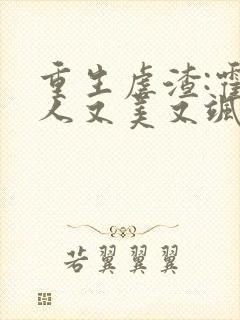 重生虐渣:霍
人又美又飒
若翼翼翼